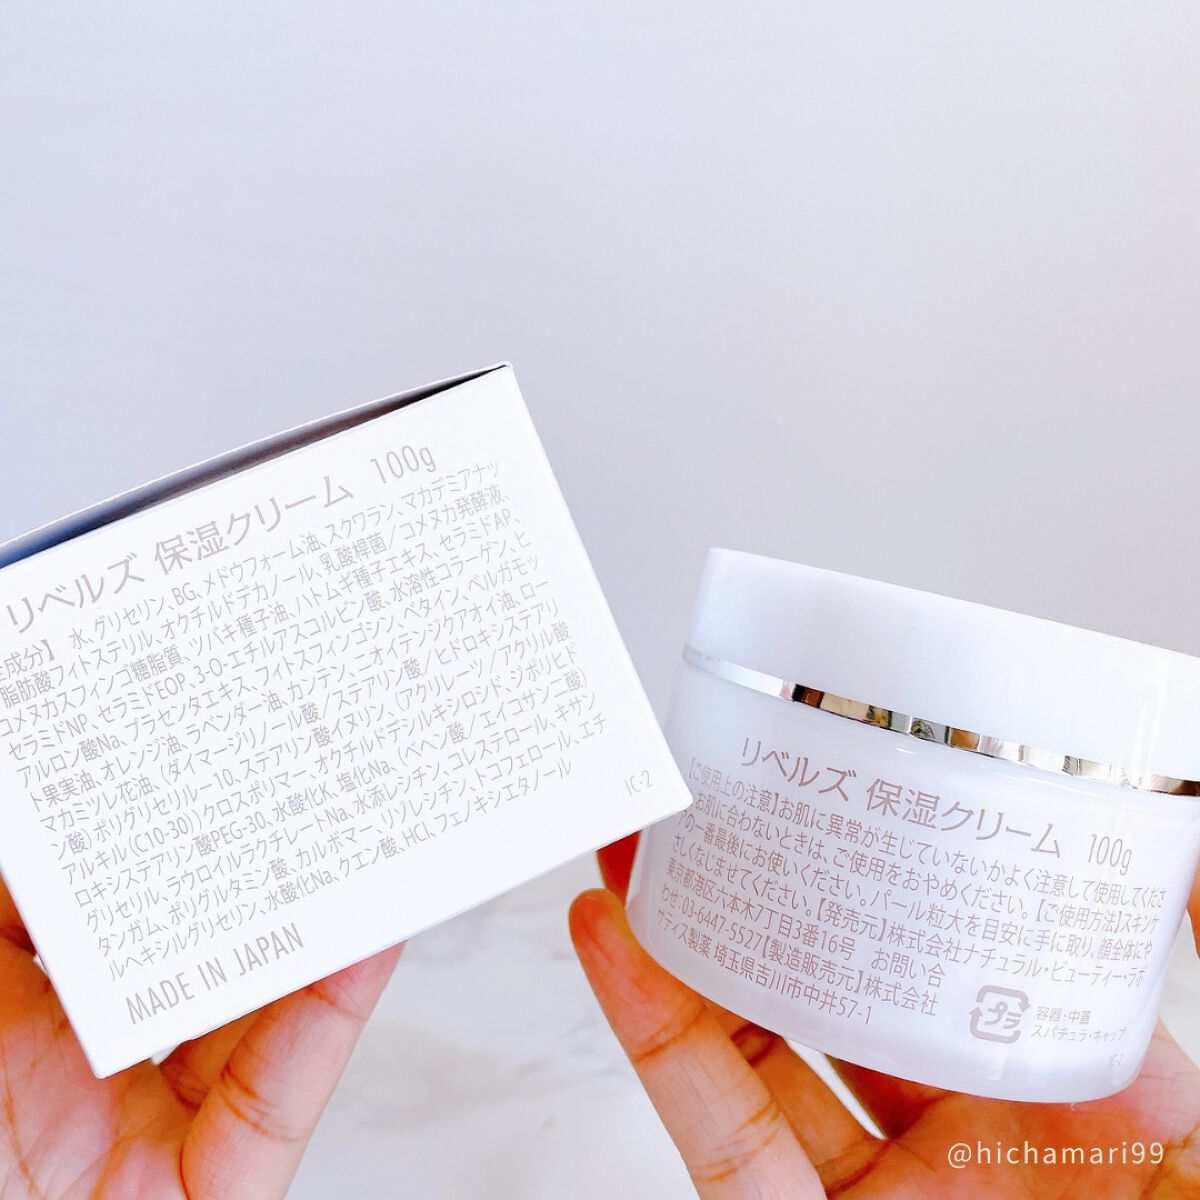 リベルズ 保湿クリーム 100g
全成分】 水、グリセリン、BG、メドウフォーム油、スクワラン、マカデミアナッ
脂肪酸フィトステリル、オクチルドデカノール、乳酸桿菌／コメヌカ発酵液、
コメヌカスフィンゴ糖脂質、ツバキ種子油、ハトムギ種子エキス、セラミドAP、
セラミドNP、セラミドEOP、3-O-エチルアスコルビン酸、水溶性コラーゲン、ヒ
アルロン酸Na、プラセンタエキス、フィトスフィンゴシン、ベタイン、ベルガモッ
ト果実油、オレンジ油、ラベンダー油、カンテン、ニオイテンジクアオイ油、ロー
マカミツレ花油、（ダイマージリノール酸／ステアリン酸／ヒドロキシステアリ
ン酸）ポリグリセリル-10、ステアリン酸イヌリン、（アクリレーツ／アクリル酸
アルキル（C10-30））クロスポリマー、オクチルドデシルキシロシド、ジポリヒド
ロキシステアリン酸PEG-30、水酸化K、塩化Na、（ベヘン酸／エイコサン二酸）
グリセリル、ラウロイルラクチレートNa、水添レシチン、コレステロール、キサン
タンガム、ポリグルタミン酸、カルボマー、リゾレシチン、トコフェロール、エチ
ルヘキシルグリセリン、水酸化Na、クエン酸、HCl、フェノキシエタノール
MADE IN JAPAN
IC-2
リベルズ 保湿クリーム 100g
【ご使用上の注意】お肌に異常が生じていないかよく注意して使用してくださ
お肌に合わないときは、ご使用をおやめください。【ご使用方法】スキンケ
アの一番最後にお使いください。パール粒大を目安に手に取り、顔全体にや
さしくなじませてください。【発売元】株式会社ナチュラル・ビューティー・ラボ
東京都港区六本木7丁目3番16号 お問い合
わせ：03-6447-5527【製造販売元】株式会社
サティス製薬 埼玉県吉川市中井57-1
プラ
容器・中蓋
スパチュラ・キャップ
IC-2
@hichamari99